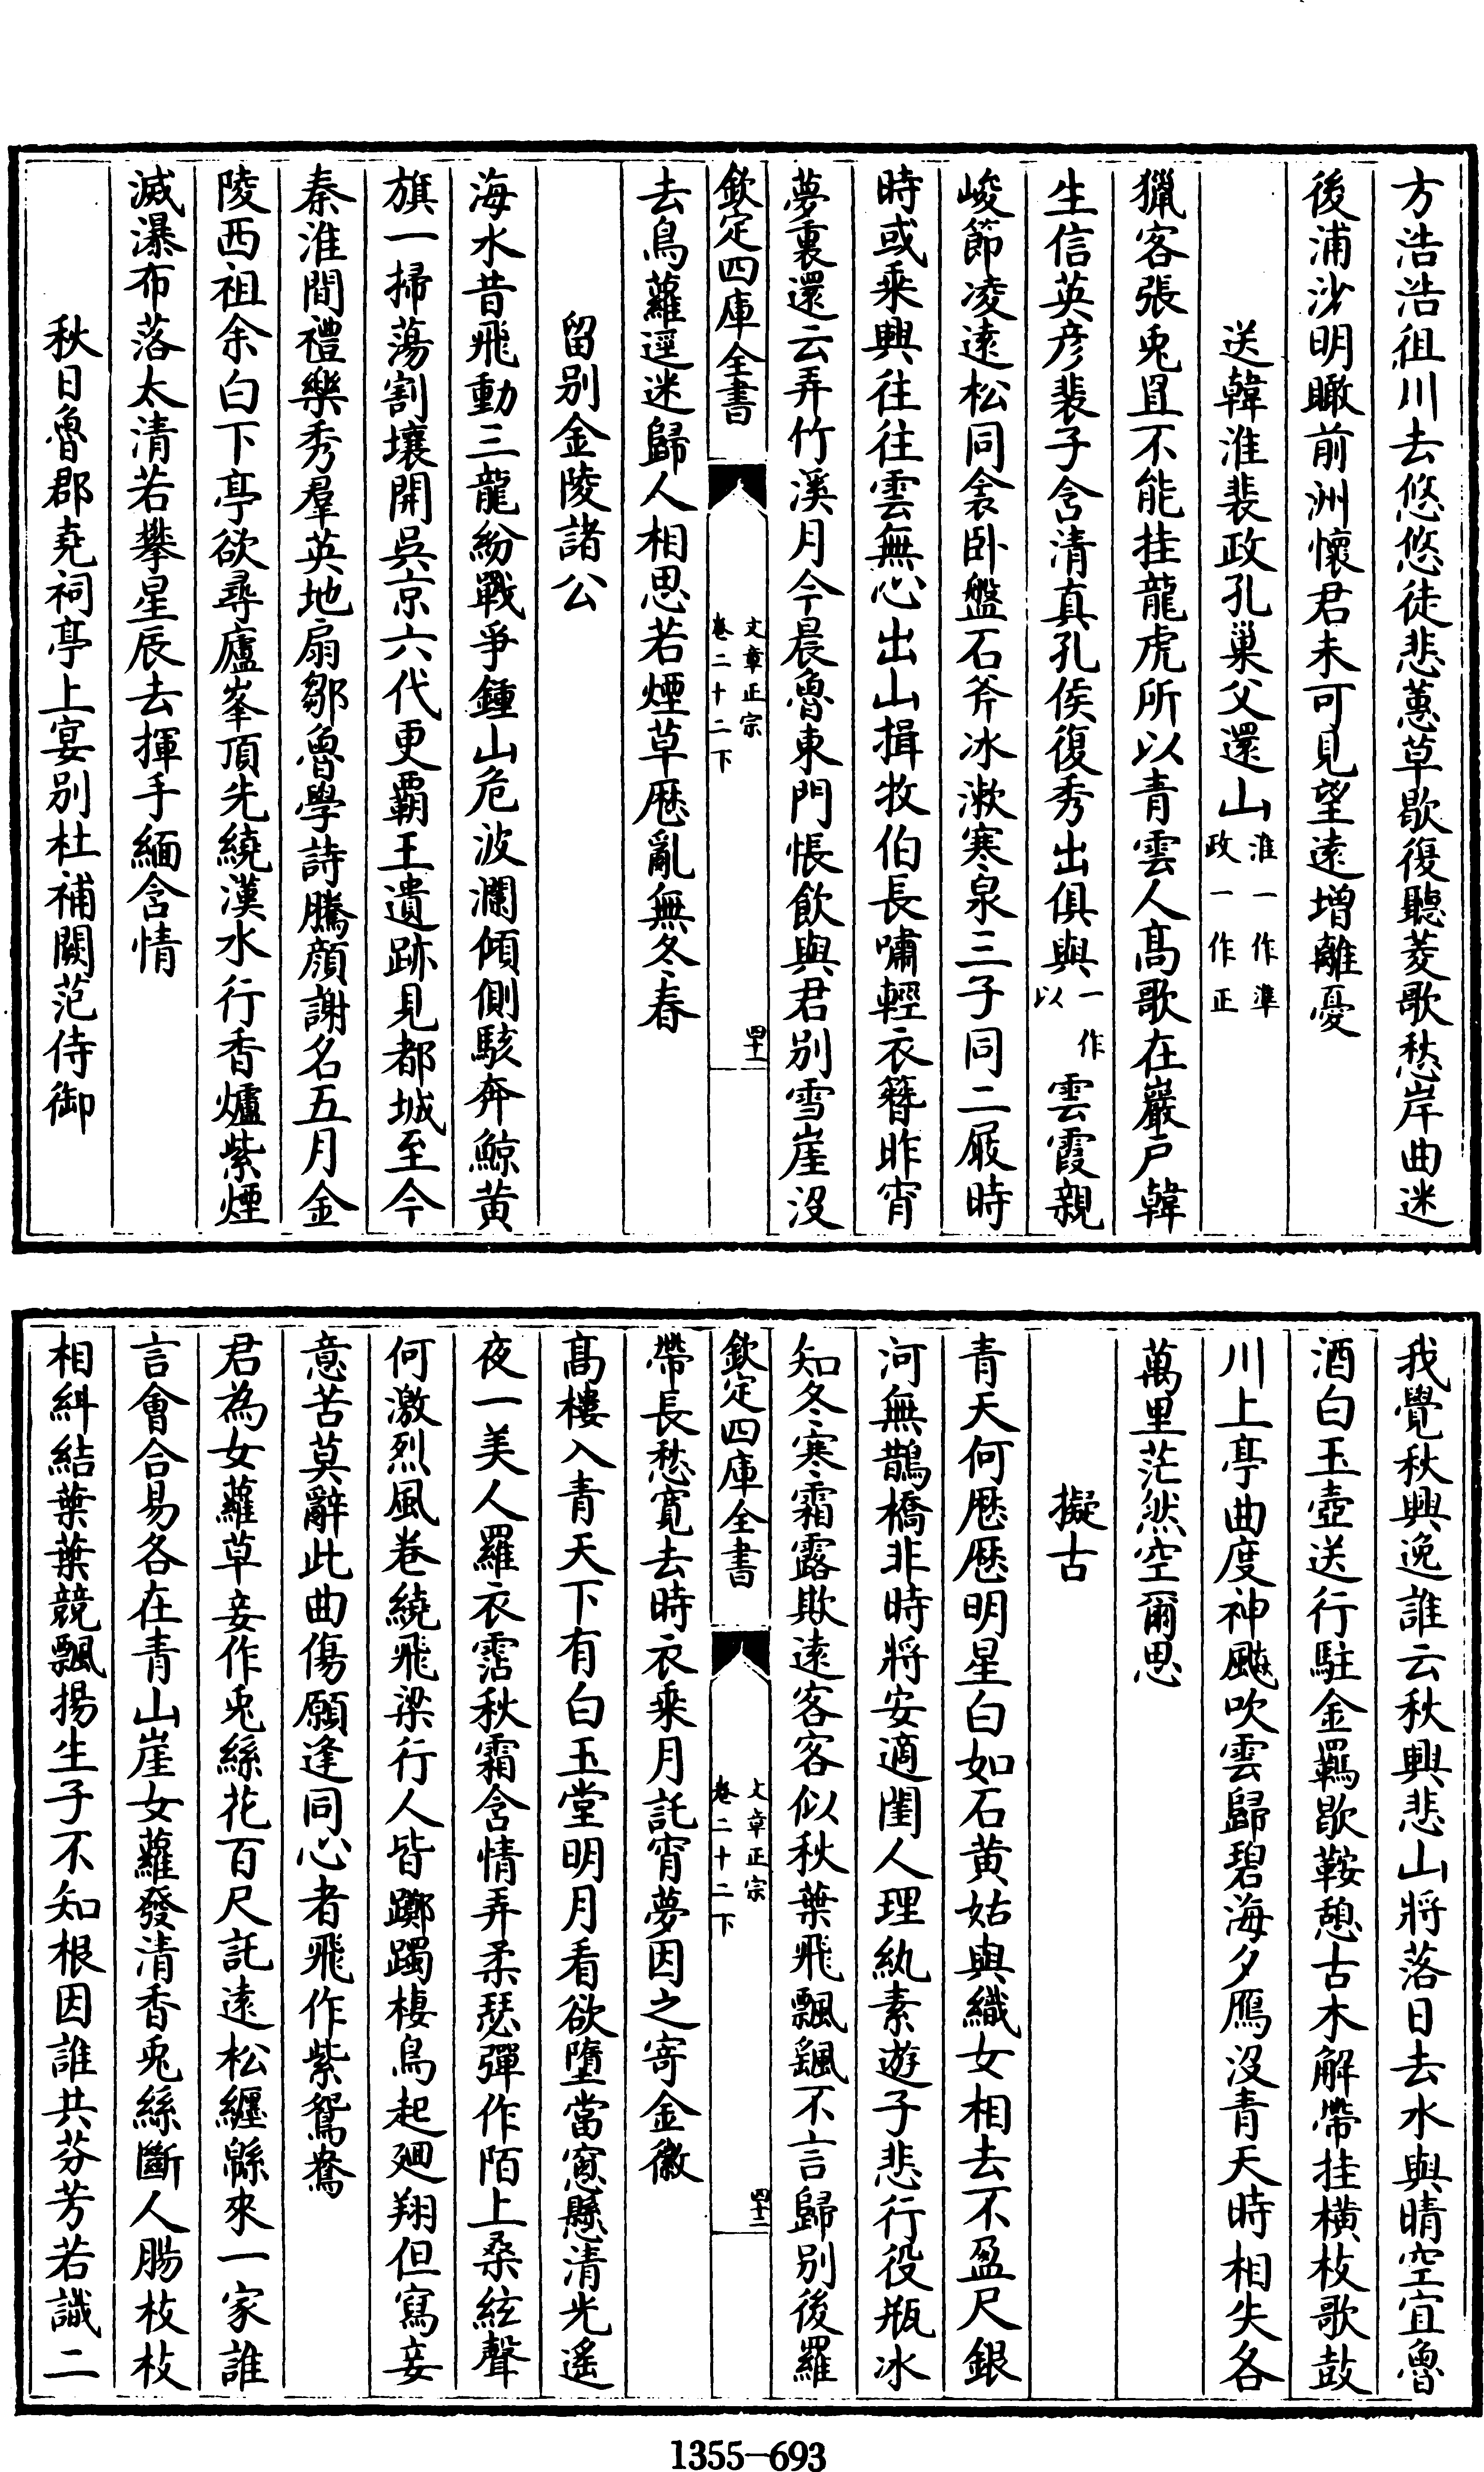 方浩浩徂川去悠悠徒悲蕙草歇復聽菱歌愁岸曲迷
後浦沙明瞰前洲懷君未可見望遠增離憂
送韓淮裴政孔巢父還山淮一作準政一作正
獵客張兎罝不能挂龍虎所以青雲人高歌在巖户韓
生信英彦裴子含清真孔侯復秀出俱與一作以雲霞親
峻節凌遠松同衾卧盤石斧冰漱寒泉三子同二屐時
時或乘興往往雲無心出山揖牧伯長嘯輕衣簪昨宵
夢裏還云弄竹溪月今晨魯東門悵飲與君别雪崖没
欽定四庫全書
文章正宗
卷二十二下
四十一
去鳥蘿逕迷歸人相思若煙草歴亂無冬春
留别金陵諸公
海水昔飛動三龍紛戰爭鍾山危波瀾傾側駭奔鯨黄
旗一掃蕩割壤開吳京六代更霸王遺跡見都城至今
秦淮間禮樂秀羣英地扇鄒魯學詩騰顔謝名五月金
陵西祖余白下亭欲尋廬峯頂先繞漢水行香爐紫煙
滅瀑布落太清若攀星辰去揮手緬含情
秋日魯郡堯祠亭上宴别杜補闕范侍御
我覺秋興逸誰云秋興悲山將落日去水與晴空宜魯
酒白玉壺送行駐金羈歇鞍憩古木解帶挂横枝歌鼓
川上亭曲度神飈吹雲歸碧海夕鴈没青天時相失各
萬里茫然空爾思
擬古
青天何歴歴明星白如石黄姑與織女相去不盈尺銀
河無鵲橋非時將安適閨人理紈素遊子悲行役瓶冰
知冬寒霜露欺遠客客似秋葉飛飄颻不言歸别後羅
欽定四庫全書
文章正宗
卷二十二下
四十二
帶長愁寛去時衣乘月託宵夢因之寄金徽
高樓入青天下有白玉堂明月看欲墮當窻懸清光遥
夜一美人羅衣霑秋霜含情弄柔瑟彈作陌上桑絃聲
何激烈風卷繞飛梁行人皆躑躅棲鳥起廻翔但寫妾
意苦莫辭此曲傷願逢同心者飛作紫鴛鴦
君為女蘿草妾作兎絲花百尺託遠松纏緜來一家誰
言會合易各在青山崖女蘿發清香兎絲斷人腸枝枝
相糾結葉葉競飄揚生子不知根因誰共芬芳若識二
1355—693